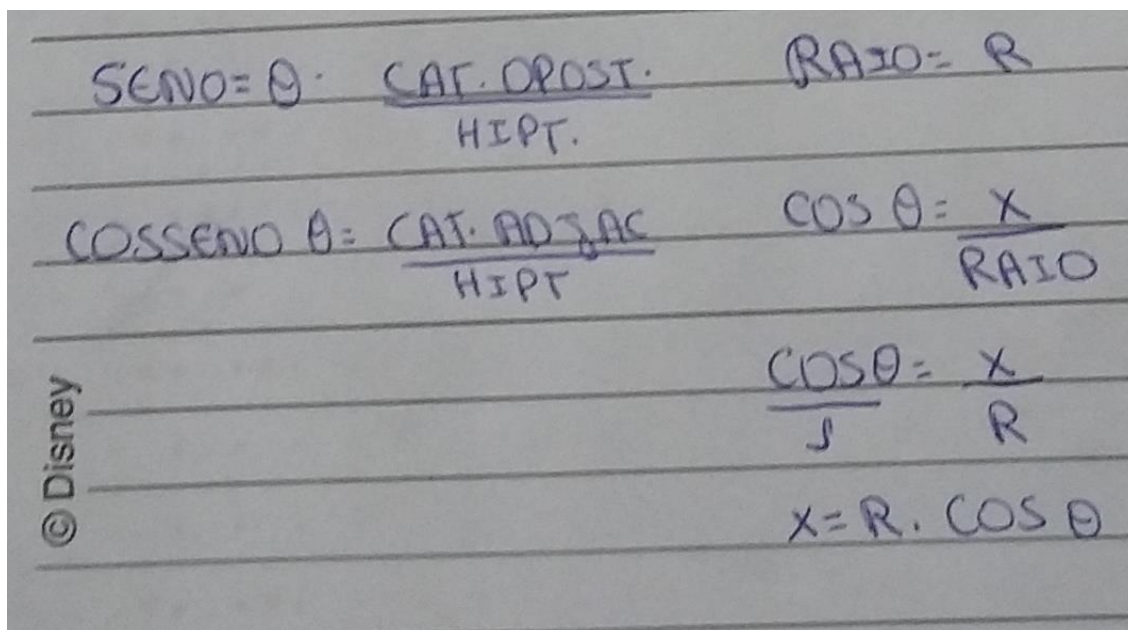 SENO = θ · CAT. OPOST. / HIPT.
COSSENO θ = CAT. ADJAC / HIPT
RAIO = R
COS θ = X / RAIO
COSθ / 1 = X / R
X = R . COS θ
© Disney